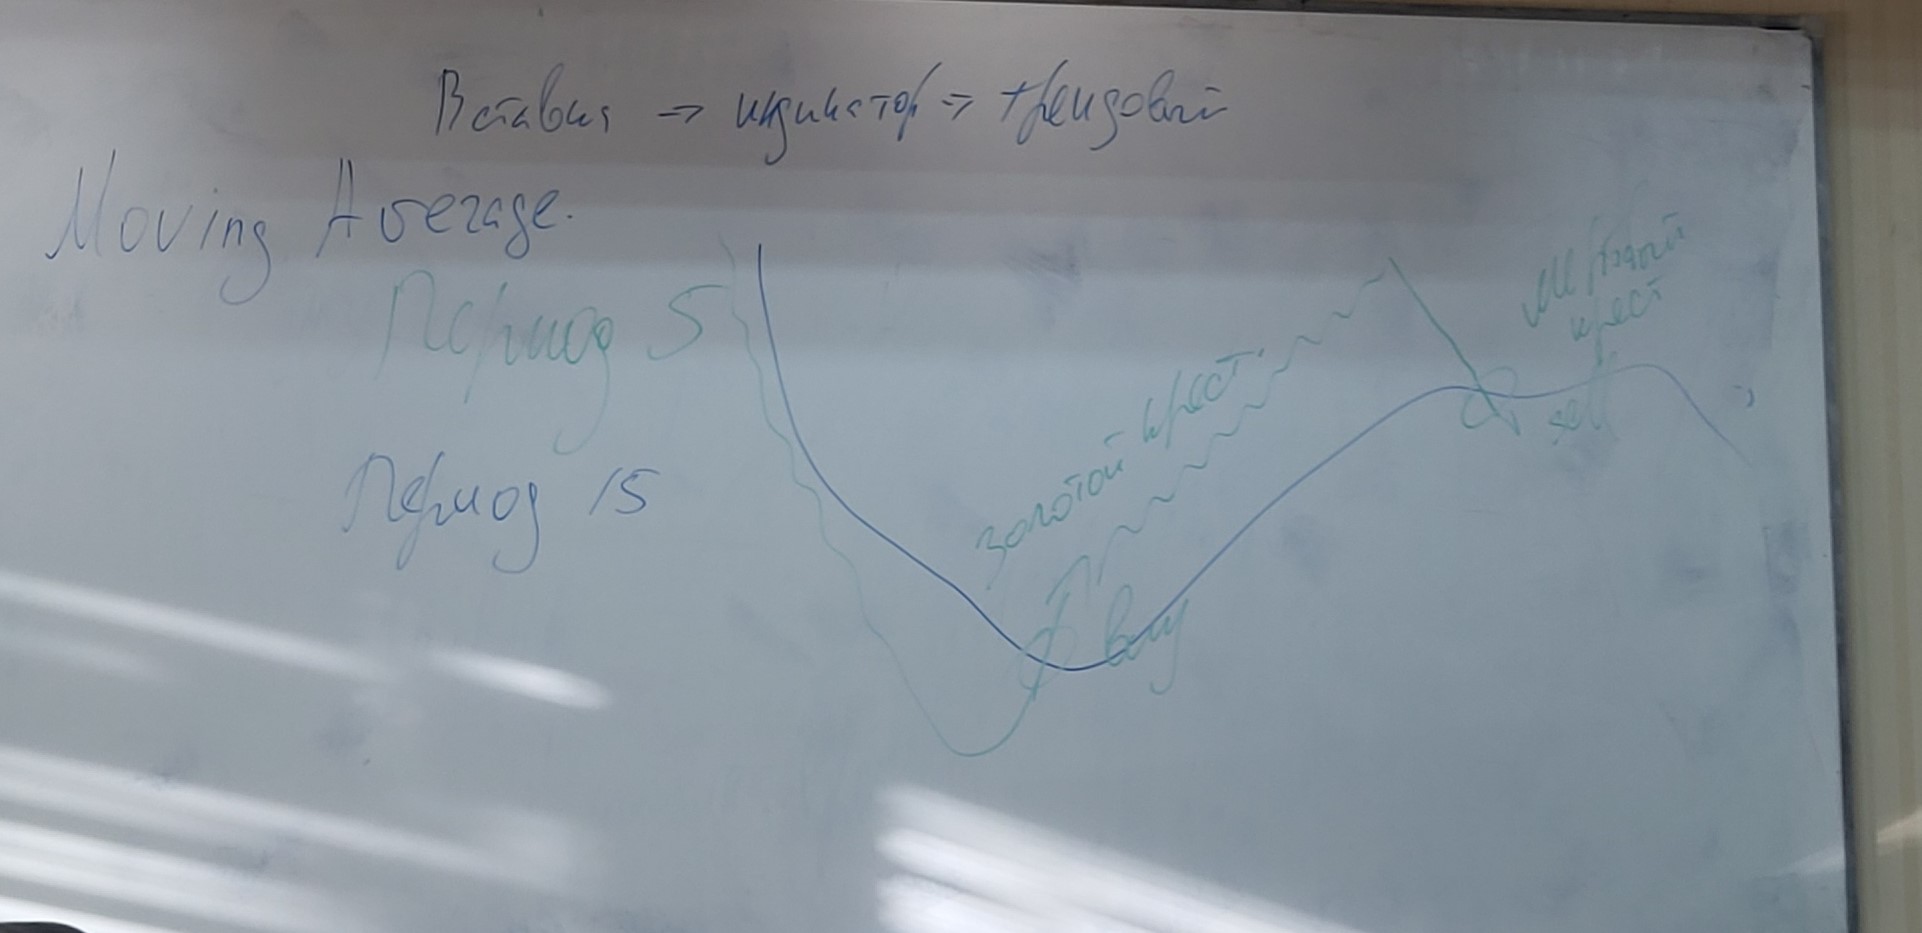 Вставка → индикатор → трендовый
Moving Average.
Период 5
Период 15
золотой крест
buy
мертвый
крест
sell